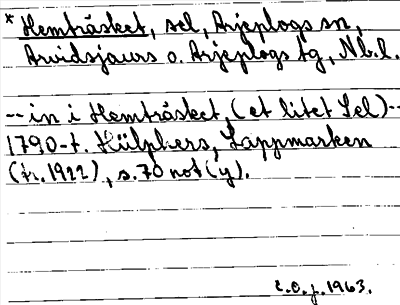 * Hemträsket, sel, Arjeplogs sn,
Arvidsjaurs o. Arjeplogs tg, Nb.l.
-- in i Hemträsket, (et litet Sel) --
1790-t. Hülphers, Lappmarken
(tr. 1922), s. 70 not (y).
E.O.j. 1963.